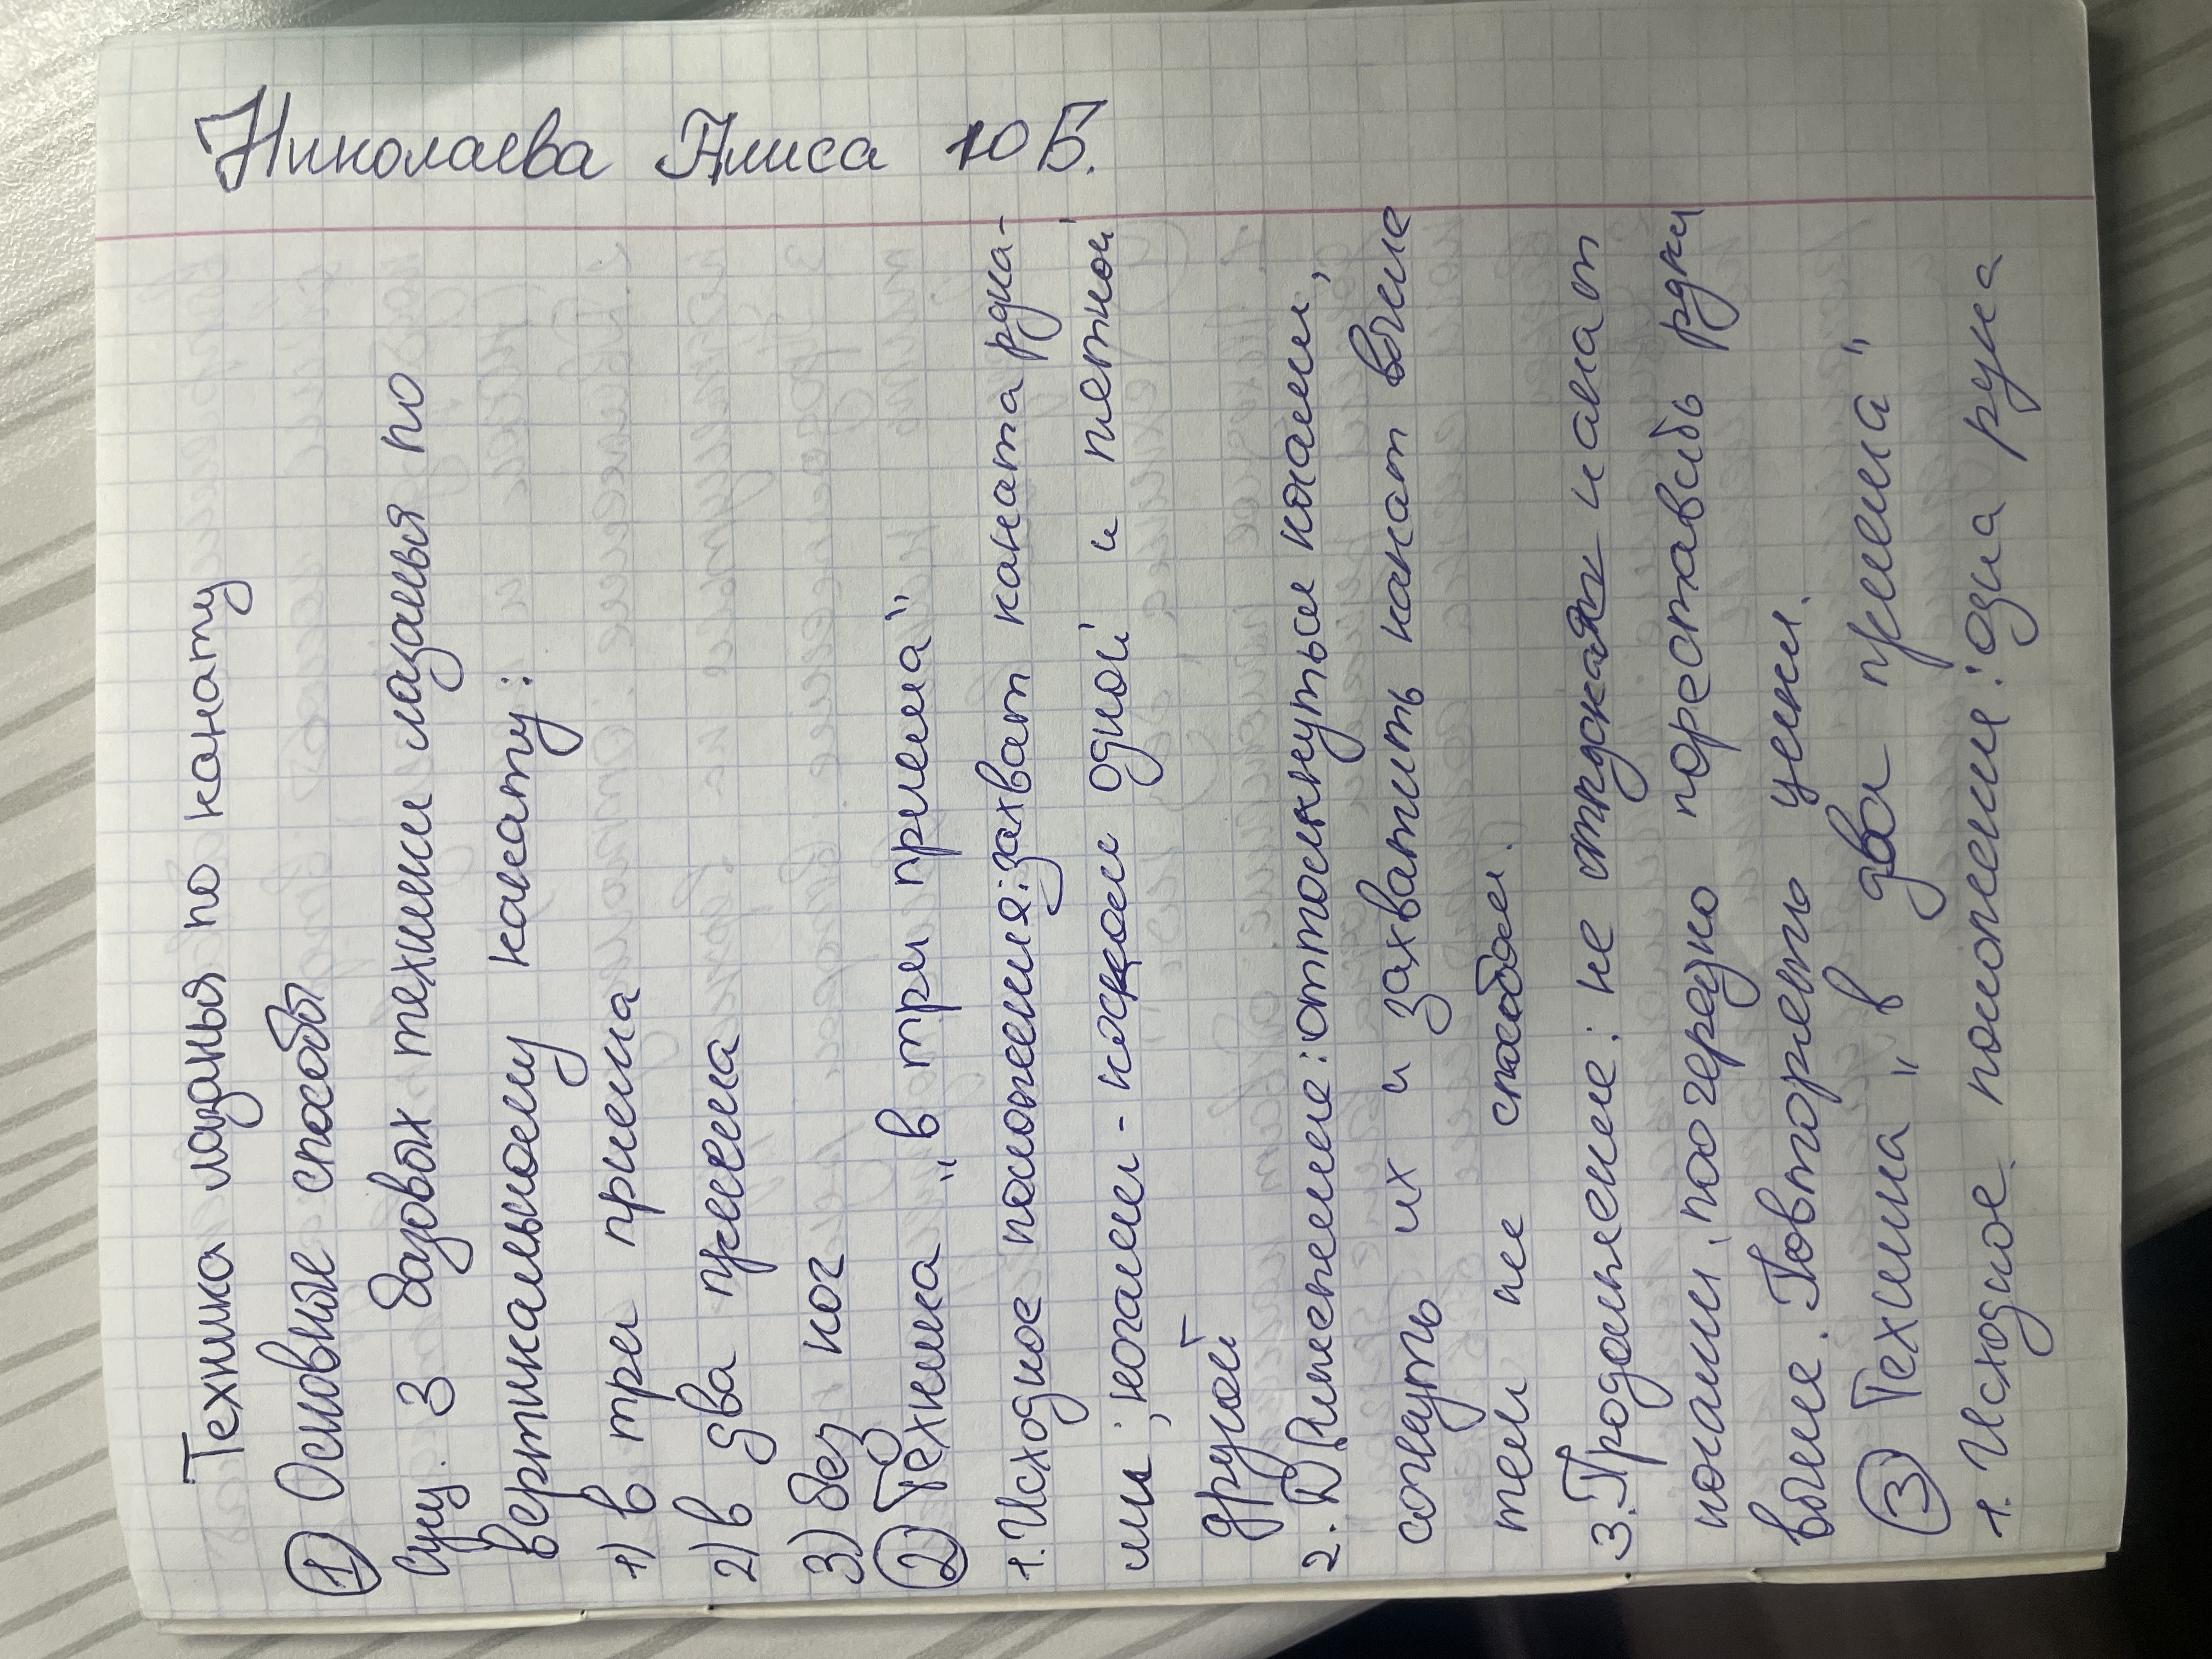 Николаева Алиса 10 Б.
Техника лазанья по канату
① Основные способы
Сущ. 3 базовых техники лазанья по
вертикальному канату:
1) в три приема
2) в два приема
3) без ног
② Техника "в три приема"
1. Исходное положение: захват каната рука-
ми; ногами - носком одной и пяткой
другой
2. Движение: оттолкнуться ногами,
согнуть их и захватить канат выше
тем же способом.
3. Продолжение: не отпуская канат
ногами, поочередно переставить руки
выше. Повторять цикл.
③ Техника "в два приема"
1. Исходное положение: одна рука